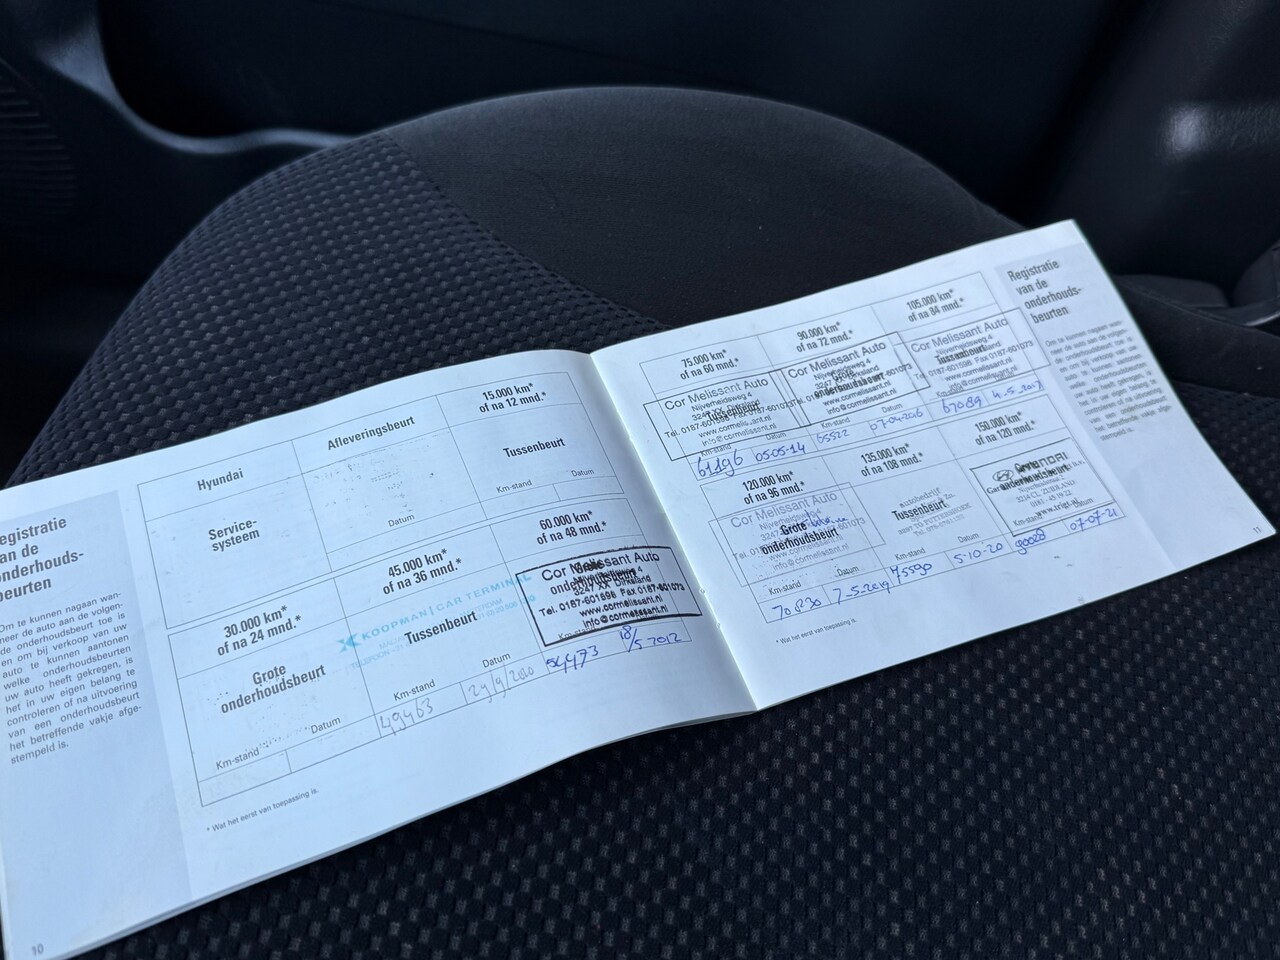 Registratie
van de
onderhouds-
beurten
Om te kunnen nagaan wan-
neer de auto aan de volgen-
de onderhoudsbeurt toe is
en om bij verkoop van uw
auto te kunnen aantonen
welke onderhoudsbeurten
uw auto heeft gekregen, is
het in uw eigen belang te
controleren of na uitvoering
van een onderhoudsbeurt
het betreffende vakje afge-
stempeld is.
10
Hyundai
Afleveringsbeurt
15.000 km*
of na 12 mnd.*
Service-
systeem
Datum
Tussenbeurt
Km-stand
Datum
30.000 km*
of na 24 mnd.*
45.000 km*
of na 36 mnd.*
60.000 km*
of na 48 mnd.*
Grote
onderhoudsbeurt
Km-stand
Datum
KOOPMAN | CAR TERMINAL
Tussenbeurt
Km-stand
Datum
49463
Cor Melissant Auto
3247 XX Dirksland
Tel. 0187-601598 Fax 0187-601073
www.cormelissant.nl
info@cormelissant.nl
54473
18/5 2012
* Wat het eerst van toepassing is.
75.000 km*
of na 60 mnd.*
90.000 km*
of na 72 mnd.*
105.000 km*
of na 84 mnd.*
Cor Melissant Auto
Nijverheidsweg 4
Tussenbeurt
www.cormelissant.nl
info@cormelissant.nl
Km-stand
Datum
61196
05-05-14
Cor Melissant Auto
Nijverheidsweg 4
onderhoudsbeurt
www.cormelissant.nl
info@cormelissant.nl
Km-stand
Datum
65522
07-04-2016
Cor Melissant Auto
Nijverheidsweg 4
Tussenbeurt
Tel. 0187-601598 Fax 0187-601073
www.cormelissant.nl
info@cormelissant.nl
Km-stand
Datum
67089
4-5-2017
120.000 km*
of na 96 mnd.*
135.000 km*
of na 108 mnd.*
150.000 km*
of na 120 mnd.*
Cor Melissant Auto
Nijverheidsweg 4
Grote
onderhoudsbeurt
www.cormelissant.nl
info@cormelissant.nl
Km-stand
Datum
7-5-2019
autobedrijf
Tussenbeurt
Km-stand
Datum
75590
5-10-20
HYUNDAI
onderhoudsbeurt
Km-stand
Datum
90028
07-07-21
* Wat het eerst van toepassing is.
Registratie
van de
onderhouds-
beurten
Om te kunnen nagaan wan-
neer de auto aan de volgen-
de onderhoudsbeurt toe is
en om bij verkoop van uw
auto te kunnen aantonen
welke onderhoudsbeurten
uw auto heeft gekregen, is
het in uw eigen belang te
controleren of na uitvoering
van een onderhoudsbeurt
het betreffende vakje afge-
stempeld is.
11